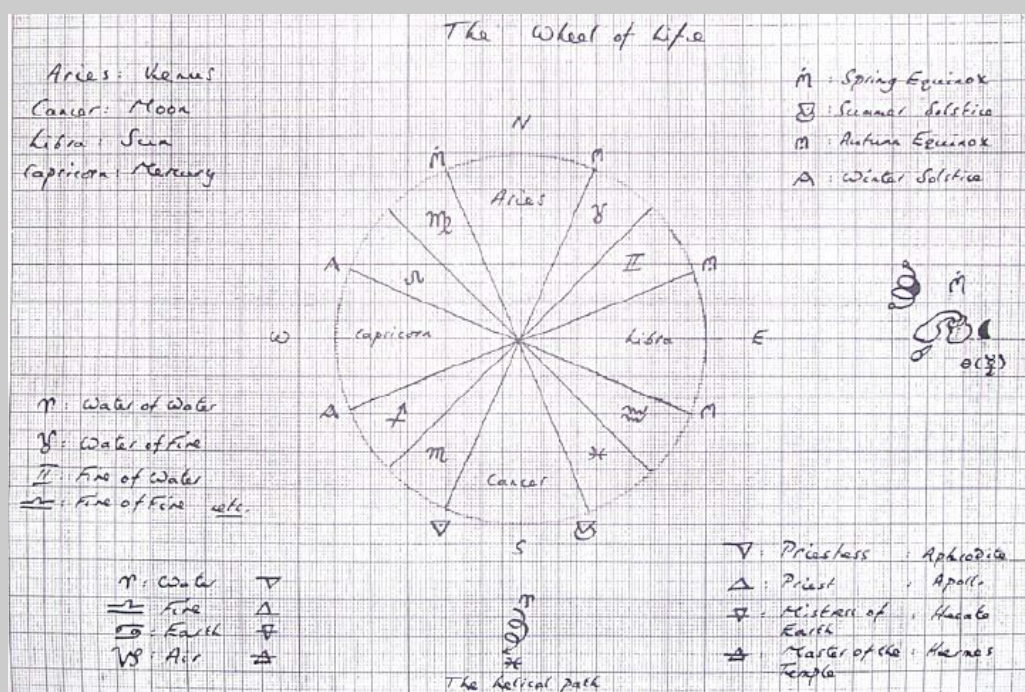 The Wheel of Life
Aries: Venus
Cancer: Moon
Libra: Sun
Capricorn: Mercury
: Spring Equinox
: Summer Solstice
: Autumn Equinox
: Winter Solstice
N
Aries
♍ ♉
♌ ♊
W Capricorn Libra E
♐ ♒
♏ ♓
Cancer
S
♈: Water of Water
♉: Water of Fire
♊: Fire of Water
♎: Fire of Fire etc.
♈: Water ▽
♎: Fire △
♋: Earth 🜃
♑: Air 🜁
♈
♓
The helical path
▽: Priestess : Aphrodite
△: Priest : Apollo
🜃: Mistress of Earth : Hecate
🜁: Master of the Temple : Hermes